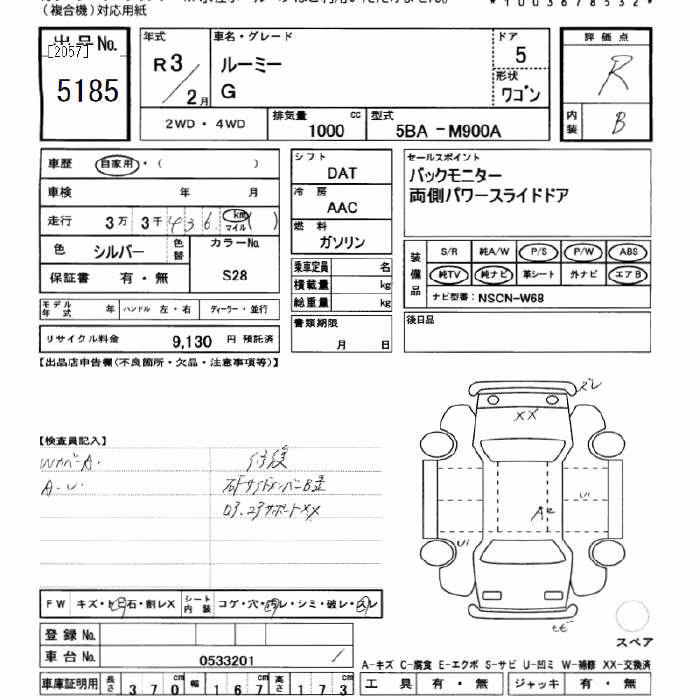 (複合機)対応用紙
出品No.
[2057]
5185
年式
R3
2月
車名・グレード
ルーミー
G
ドア
5
形状
ワゴン
評価点
R
内装
B
2WD・4WD
排気量
cc
1000
型式
5BA -M900A
車歴
自家用・(
)
車検
年
月
走行
3万 3千 436
km
マイル
( )
色
シルバー
色替
カラーNo.
S28
保証書
有・無
シフト
DAT
冷房
AAC
燃料
ガソリン
乗車定員
名
積載量
kg
総重量
kg
セールスポイント
バックモニター
両側パワースライドドア
装備品
S/R
純A/W
P/S
P/W
ABS
純TV
純ナビ
革シート
外ナビ
エアB
ナビ型番:NSCN-W68
モデル年式
年
ハンドル 左・右
ディーラー・並行
リサイクル料金
9,130
円 預託済
書類期限
月
日
後日品
【出品店申告欄(不良箇所・欠品・注意事項等)】
【検査員記入】
WカバーA.
A-U.
修復
03.23サポートXX
ズレ
XX
UI
UI
FW
キズ・ヒビ石・割レX
シート内装
コゲ・穴・汚レ・シミ・破レ・スレ
登録No.
車台No.
0533201
/
車庫証明用
長さ
370
cm
幅
167
cm
高さ
173
cm
スペア
A-キズ C-腐食 E-エクボ S-サビ U-凹ミ W-補修 XX-交換済
工具
有・無
ジャッキ
有・無